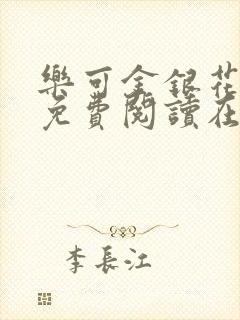 樂可金銀花
免費閱讀在
李長江